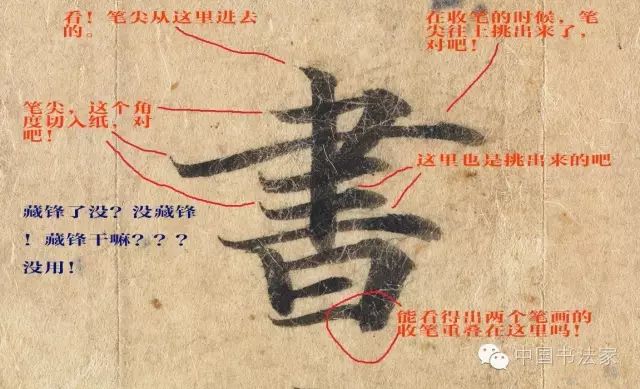 看！笔尖从这里进去
的。
在收笔的时候，笔
尖往上挑出来了，
对吧！
笔尖，这个角
度切入纸，对
吧！
這里也是挑出来的吧
書
藏锋了没？没藏锋
！藏锋干嘛？？？
没用！
能看得出两个笔画的
收笔重叠在这里吗！
中国书法家